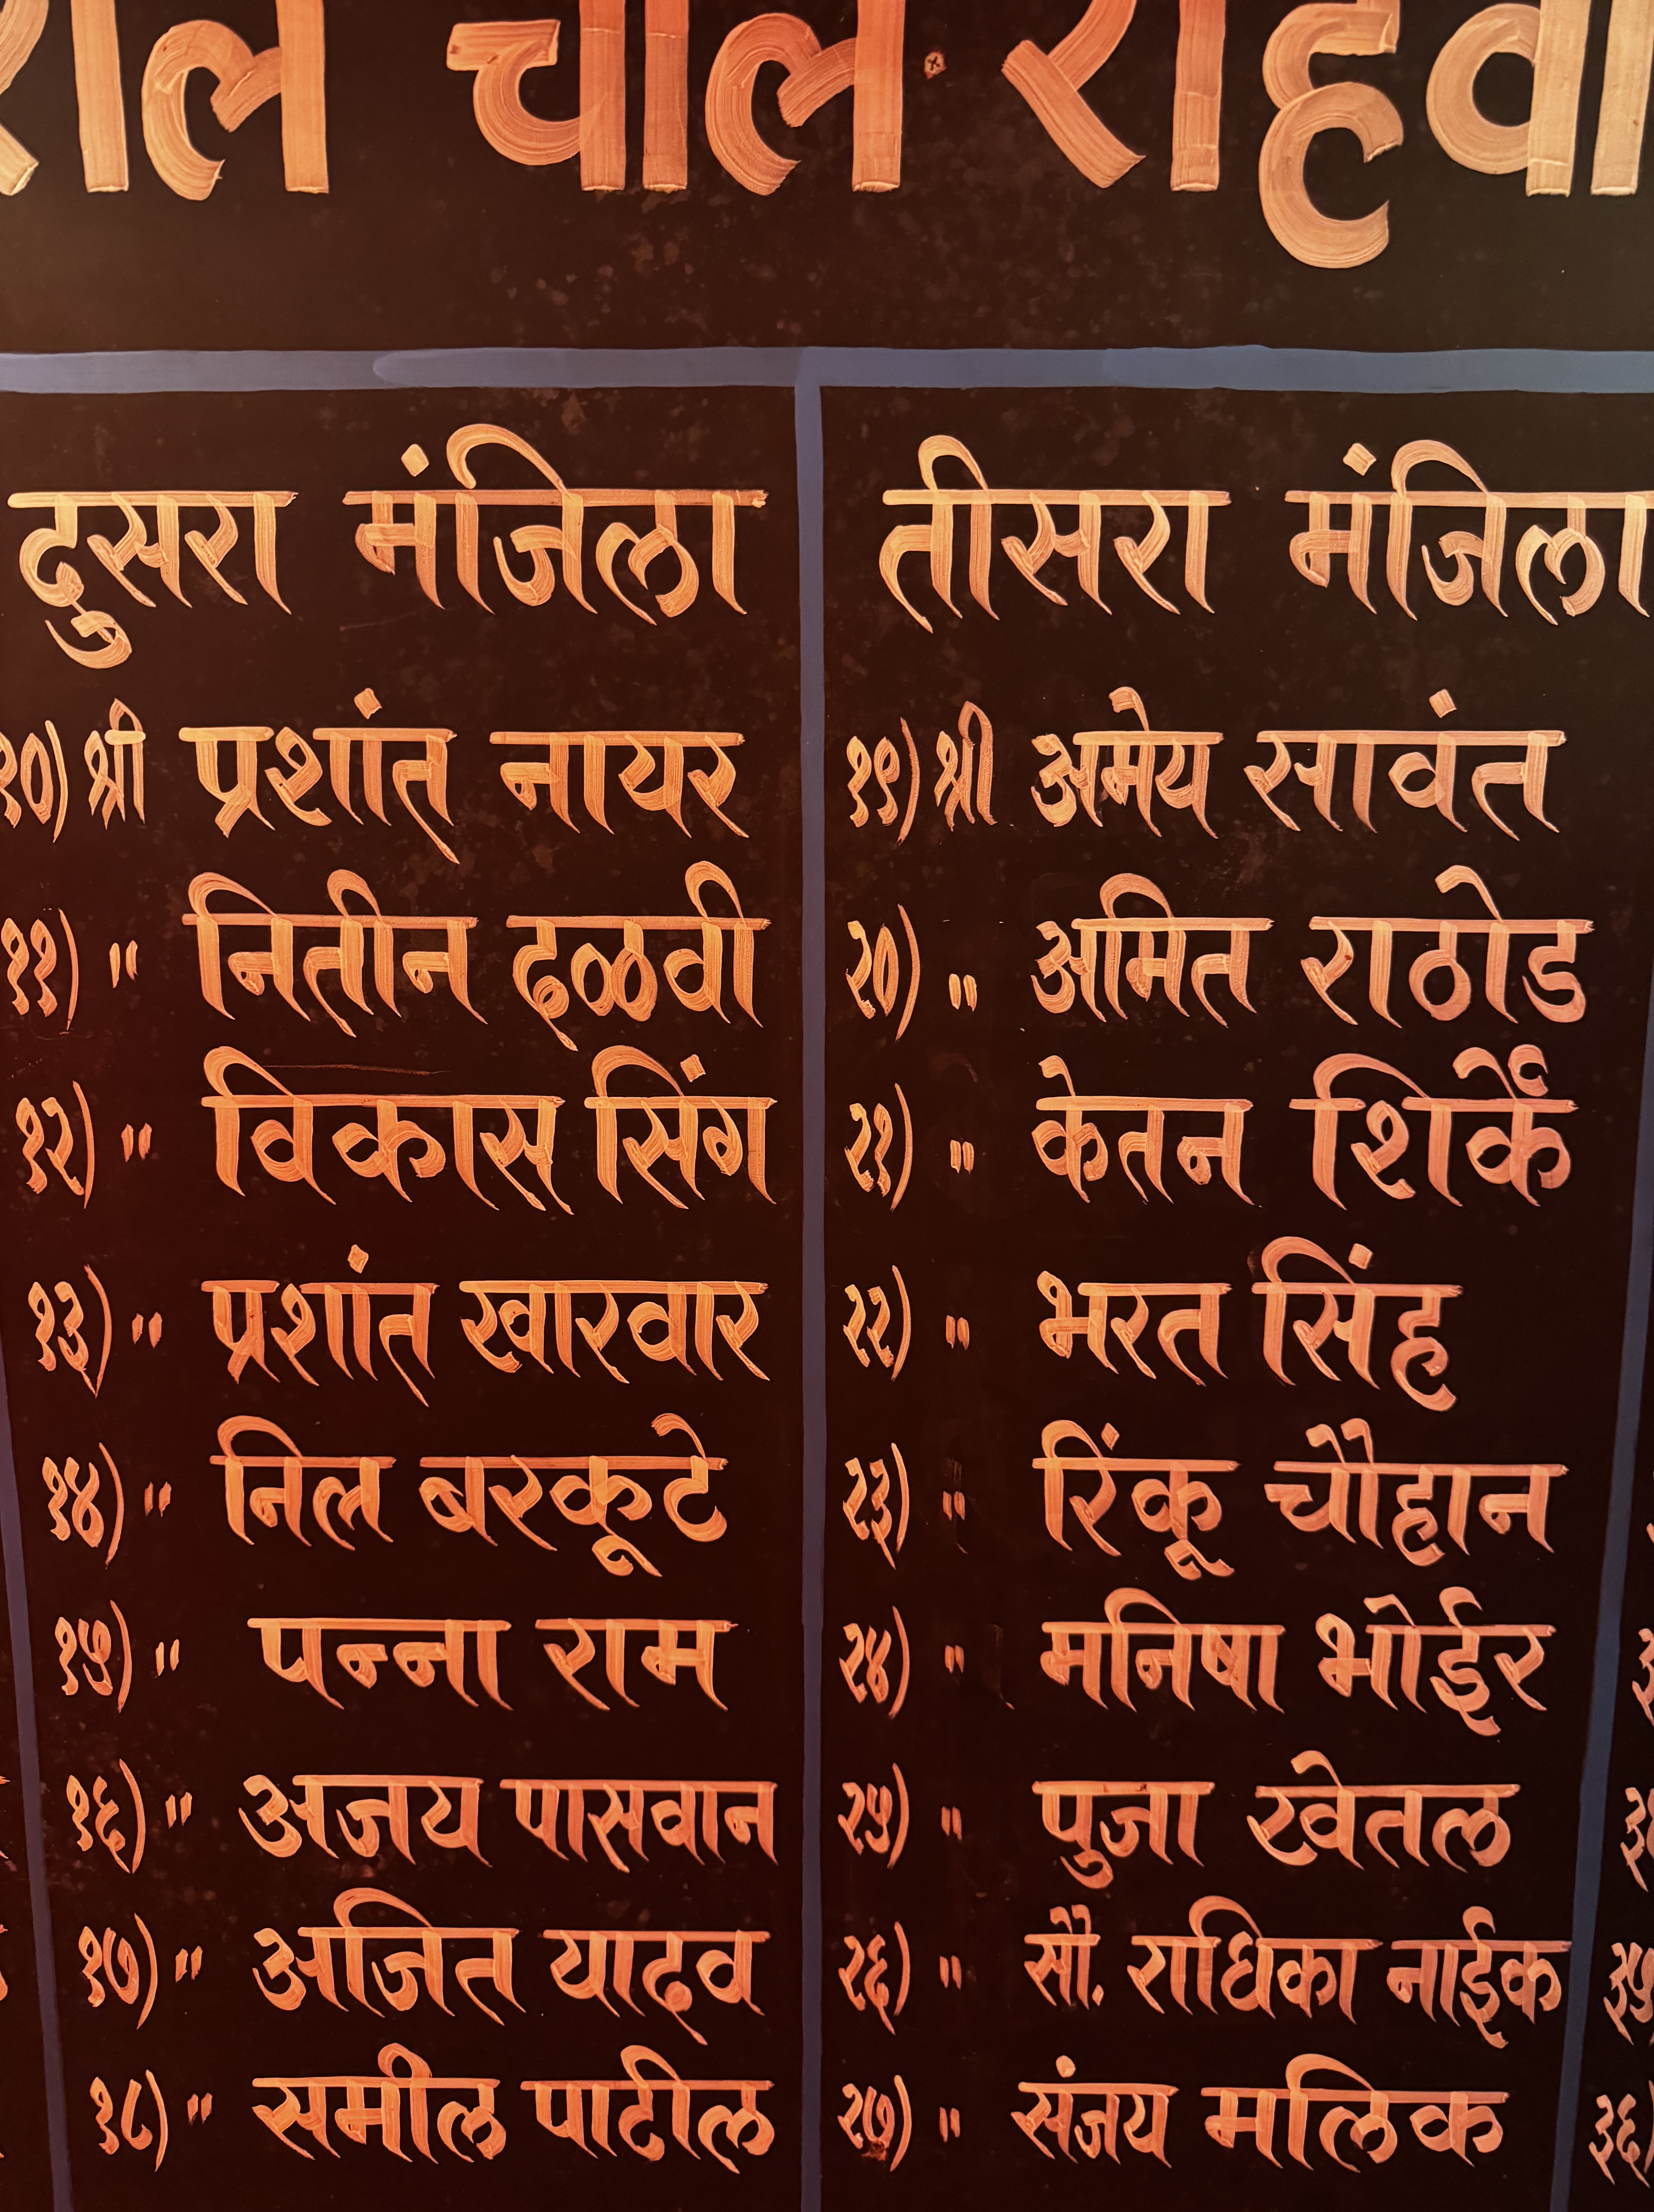 चाल राहवा
दुसरा मंजिला
१०) श्री प्रशांत नायर
११) " नितीन दळवी
१२) " विकास सिंग
१३) " प्रशांत खारवार
१४) " निल बरकूटे
१५) " पन्ना राम
१६) " अजय पासवान
१७) " अजित यादव
१८) " समील पाटील
तीसरा मंजिला
१९) श्री अमेय सावंत
२०) " अमित राठोड
२१) " केतन शिर्के
२२) " भरत सिंह
२३) " रिंकू चौहान
२४) " मनिषा भोईर
२५) " पुजा खेतल
२६) " सौ. राधिका नाईक
२७) " संजय मलिक
३६)